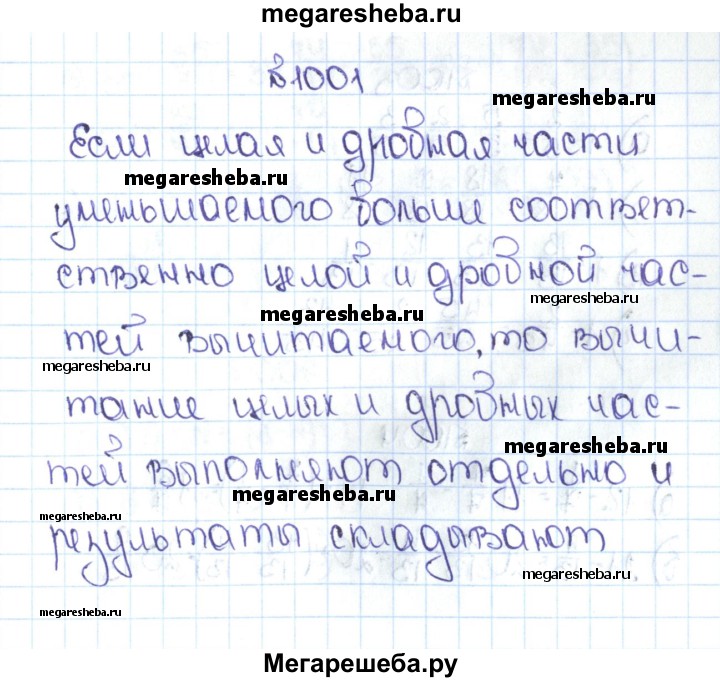 megaresheba.ru
№1001
megaresheba.ru
Если целая и дробная части
megaresheba.ru
уменьшаемого больше соответ-
ственно целой и дробной час-
megaresheba.ru
megaresheba.ru
тей вычитаемого, то вычи-
megaresheba.ru
тание целых и дробных час-
megaresheba.ru
тей выполняют отдельно и
megaresheba.ru
megaresheba.ru
результаты складывают
megaresheba.ru
megaresheba.ru
Мегарешеба.ру